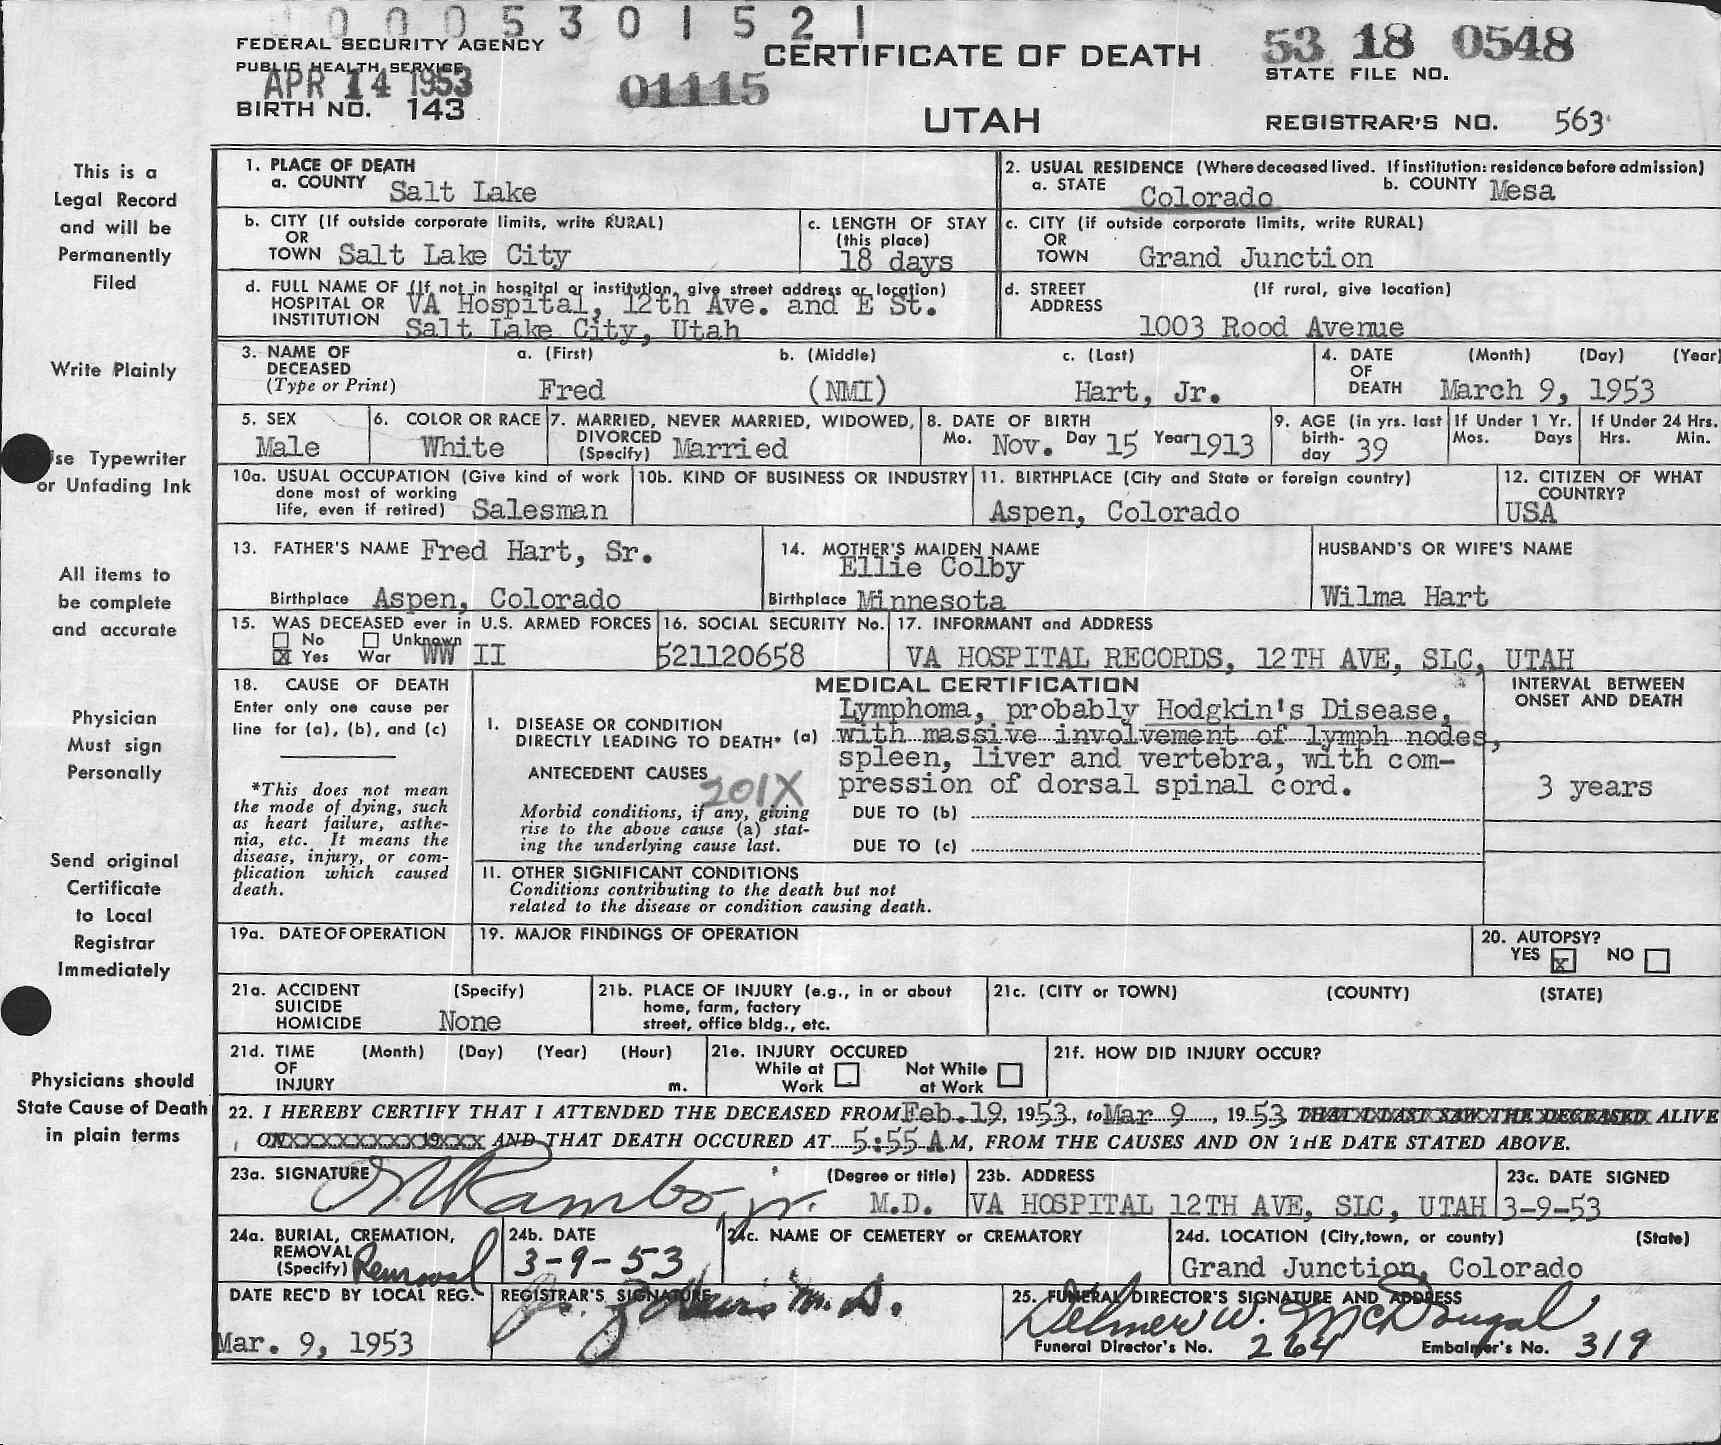 0 0 0 5 3 0 1 5 2 1
FEDERAL SECURITY AGENCY
PUBLIC HEALTH SERVICE
APR 14 1953
BIRTH NO. 143
01115
CERTIFICATE OF DEATH
UTAH
53 18 0548
STATE FILE NO.
REGISTRAR'S NO. 563
This is a
Legal Record
and will be
Permanently
Filed
Write Plainly
se Typewriter
or Unfading Ink
All items to
be complete
and accurate
Physician
Must sign
Personally
Send original
Certificate
to Local
Registrar
Immediately
Physicians should
State Cause of Death
in plain terms
1. PLACE OF DEATH
a. COUNTY Salt Lake
2. USUAL RESIDENCE (Where deceased lived. If institution: residence before admission)
a. STATE Colorado b. COUNTY Mesa
b. CITY (If outside corporate limits, write RURAL)
OR
TOWN Salt Lake City
c. LENGTH OF STAY
(this place)
18 days
c. CITY (if outside corporate limits, write RURAL)
OR
TOWN Grand Junction
d. FULL NAME OF (If not in hospital or institution, give street address or location)
HOSPITAL OR VA Hospital, 12th Ave. and E St.
INSTITUTION Salt Lake City, Utah
d. STREET (If rural, give location)
ADDRESS
1003 Rood Avenue
3. NAME OF a. (First) b. (Middle) c. (Last)
DECEASED
(Type or Print) Fred (NMI) Hart, Jr.
4. DATE (Month) (Day) (Year)
OF
DEATH March 9, 1953
5. SEX
Male
6. COLOR OR RACE
White
7. MARRIED, NEVER MARRIED, WIDOWED,
DIVORCED
(Specify) Married
8. DATE OF BIRTH
Mo. Nov. Day 15 Year 1913
9. AGE (in yrs. last
birth-
day 39
If Under 1 Yr.
Mos. Days
If Under 24 Hrs.
Hrs. Min.
10a. USUAL OCCUPATION (Give kind of work
done most of working
life, even if retired) Salesman
10b. KIND OF BUSINESS OR INDUSTRY
11. BIRTHPLACE (City and State or foreign country)
Aspen, Colorado
12. CITIZEN OF WHAT
COUNTRY?
USA
13. FATHER'S NAME Fred Hart, Sr.
Birthplace Aspen, Colorado
14. MOTHER'S MAIDEN NAME
Ellie Colby
Birthplace Minnesota
HUSBAND'S OR WIFE'S NAME
Wilma Hart
15. WAS DECEASED ever in U.S. ARMED FORCES
No Unknown
X Yes War WW II
16. SOCIAL SECURITY No.
521120658
17. INFORMANT and ADDRESS
VA HOSPITAL RECORDS, 12TH AVE, SLC, UTAH
18. CAUSE OF DEATH
Enter only one cause per
line for (a), (b), and (c)
*This does not mean
the mode of dying, such
as heart failure, asthe-
nia, etc. It means the
disease, injury, or com-
plication which caused
death.
MEDICAL CERTIFICATION
I. DISEASE OR CONDITION
DIRECTLY LEADING TO DEATH* (a)
Lymphoma, probably Hodgkin's Disease,
with massive involvement of lymph nodes,
spleen, liver and vertebra, with com-
pression of dorsal spinal cord.
ANTECEDENT CAUSES
201X
Morbid conditions, if any, giving
rise to the above cause (a) stat-
ing the underlying cause last.
DUE TO (b)
DUE TO (c)
INTERVAL BETWEEN
ONSET AND DEATH
3 years
II. OTHER SIGNIFICANT CONDITIONS
Conditions contributing to the death but not
related to the disease or condition causing death.
19a. DATE OF OPERATION
19. MAJOR FINDINGS OF OPERATION
20. AUTOPSY?
YES X NO
21a. ACCIDENT (Specify)
SUICIDE
HOMICIDE None
21b. PLACE OF INJURY (e.g., in or about
home, farm, factory
street, office bldg., etc.
21c. (CITY or TOWN) (COUNTY) (STATE)
21d. TIME (Month) (Day) (Year) (Hour)
OF
INJURY m.
21e. INJURY OCCURED
While at Not While
Work at Work
21f. HOW DID INJURY OCCUR?
22. I HEREBY CERTIFY THAT I ATTENDED THE DECEASED FROM Feb. 19, 1953, to Mar 9, 1953 THAT I LAST SAW THE DECEASED ALIVE
ON AND THAT DEATH OCCURED AT 5:55 A.M, FROM THE CAUSES AND ON THE DATE STATED ABOVE.
23a. SIGNATURE Rambo, jr. (Degree or title)
M.D.
23b. ADDRESS
VA HOSPITAL 12TH AVE, SLC, UTAH
23c. DATE SIGNED
3-9-53
24a. BURIAL, CREMATION,
REMOVAL
(Specify) Removal
24b. DATE
3-9-53
24c. NAME OF CEMETERY or CREMATORY
24d. LOCATION (City, town, or county) (State)
Grand Junction, Colorado
DATE REC'D BY LOCAL REG.
Mar. 9, 1953
REGISTRAR'S SIGNATURE
M.D.
25. FUNERAL DIRECTOR'S SIGNATURE AND ADDRESS
Delmer W. McDougal
Funeral Director's No. 264 Embalmer's No. 319